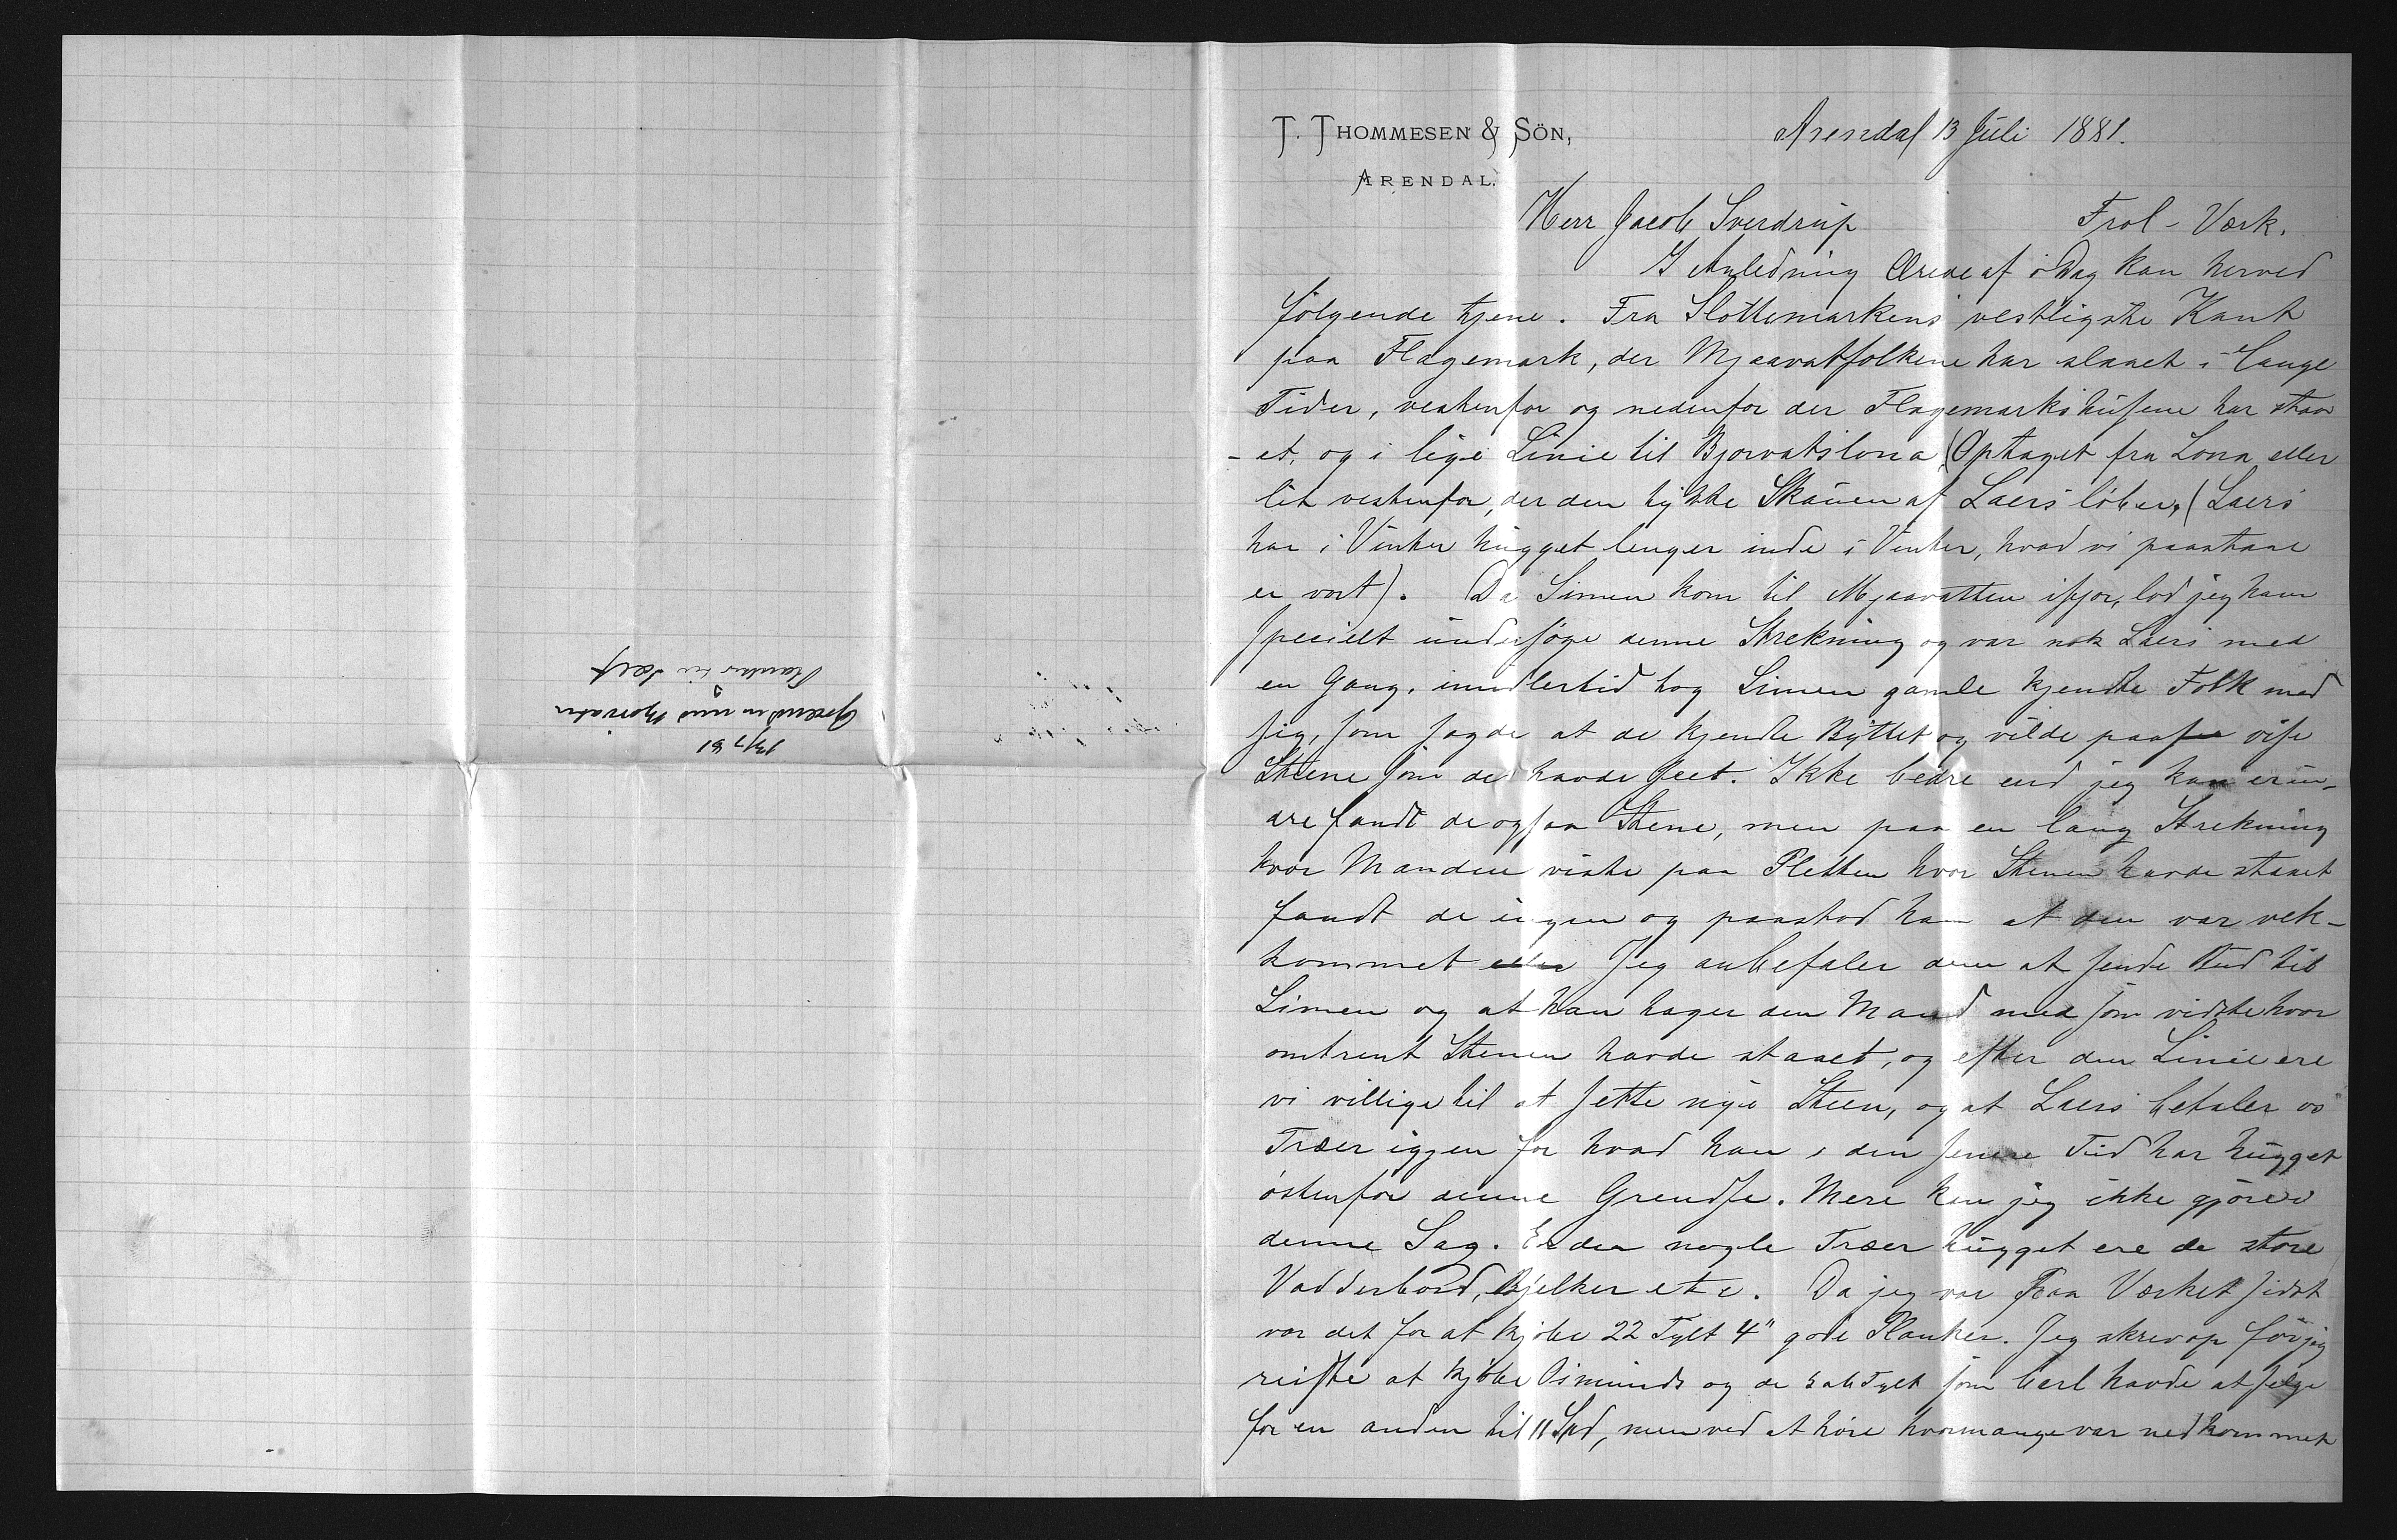 T. THOMMESEN & SÖN,
ARENDAL.
Arendal 13 Juli 1881.
Herr Jacob Sverdrup Frol-Værk.
I Anledning Deres af i Dag kan herved
følgende tjene. Fra Slottemarkens vestligste Kant
paa Flagemark, der Mjaavatfolkene har slaaet i lange
Tider, vestenfor og nedenfor der Flagemarkshusene har staa
-et, og i lige Linie til Bjorvatslona (Optaget fra Lona eller
lit vestenfor, der den tykke Skauen af Laers løber, (Laers
har i Vinter hugget lenger inde i Vinter, hvad vi paastaae
er vort). Da Simen kom til Mjaavatten ifjor, lod jeg ham
specielt undersøge denne Strekning og var nok Laers med
en Gang, imidlertid tog Simen gamle kjendte Folk med
sig, som sagde at de kjendte Byttet og vilde paa vise
Stene som de havde seet. Ikke bedre end jeg kan erin-
dre fandt de ogsaa Stene, men paa en lang Strekning
hvor Manden viste paa Pletten hvor Stenen havde staaet
fandt de ingen og paastod han at den var vek-
kommet Jeg anbefaler dem at sende Bud til
Simen og at han tager den Mand med som vidste hvor
omtrent Stenen havde staaet, og efter den Linie ere
vi villige til at sette nye Steen, og at Laers betaler os
Træer igjen for hvad han i den senere Tid har hugget
østenfor denne Grendse. Mere kan jeg ikke gjøre i
denne Sag. Er der nogle Træer hugget ere de store
Vadderbord, Bjelker etc. Da jeg var paa Værket sidst
var det for at kjøbe 22 Tylt 4" gode Planker. Jeg skrev op før jeg
reiste at kjøbe Osmunds og de Tylt som Carl havde at selge
for en anden til 11 Spd, men ved at høre hvormange var nedkommet
13/7 81
Grendsen mod Bjorvatn
Planker til Salg